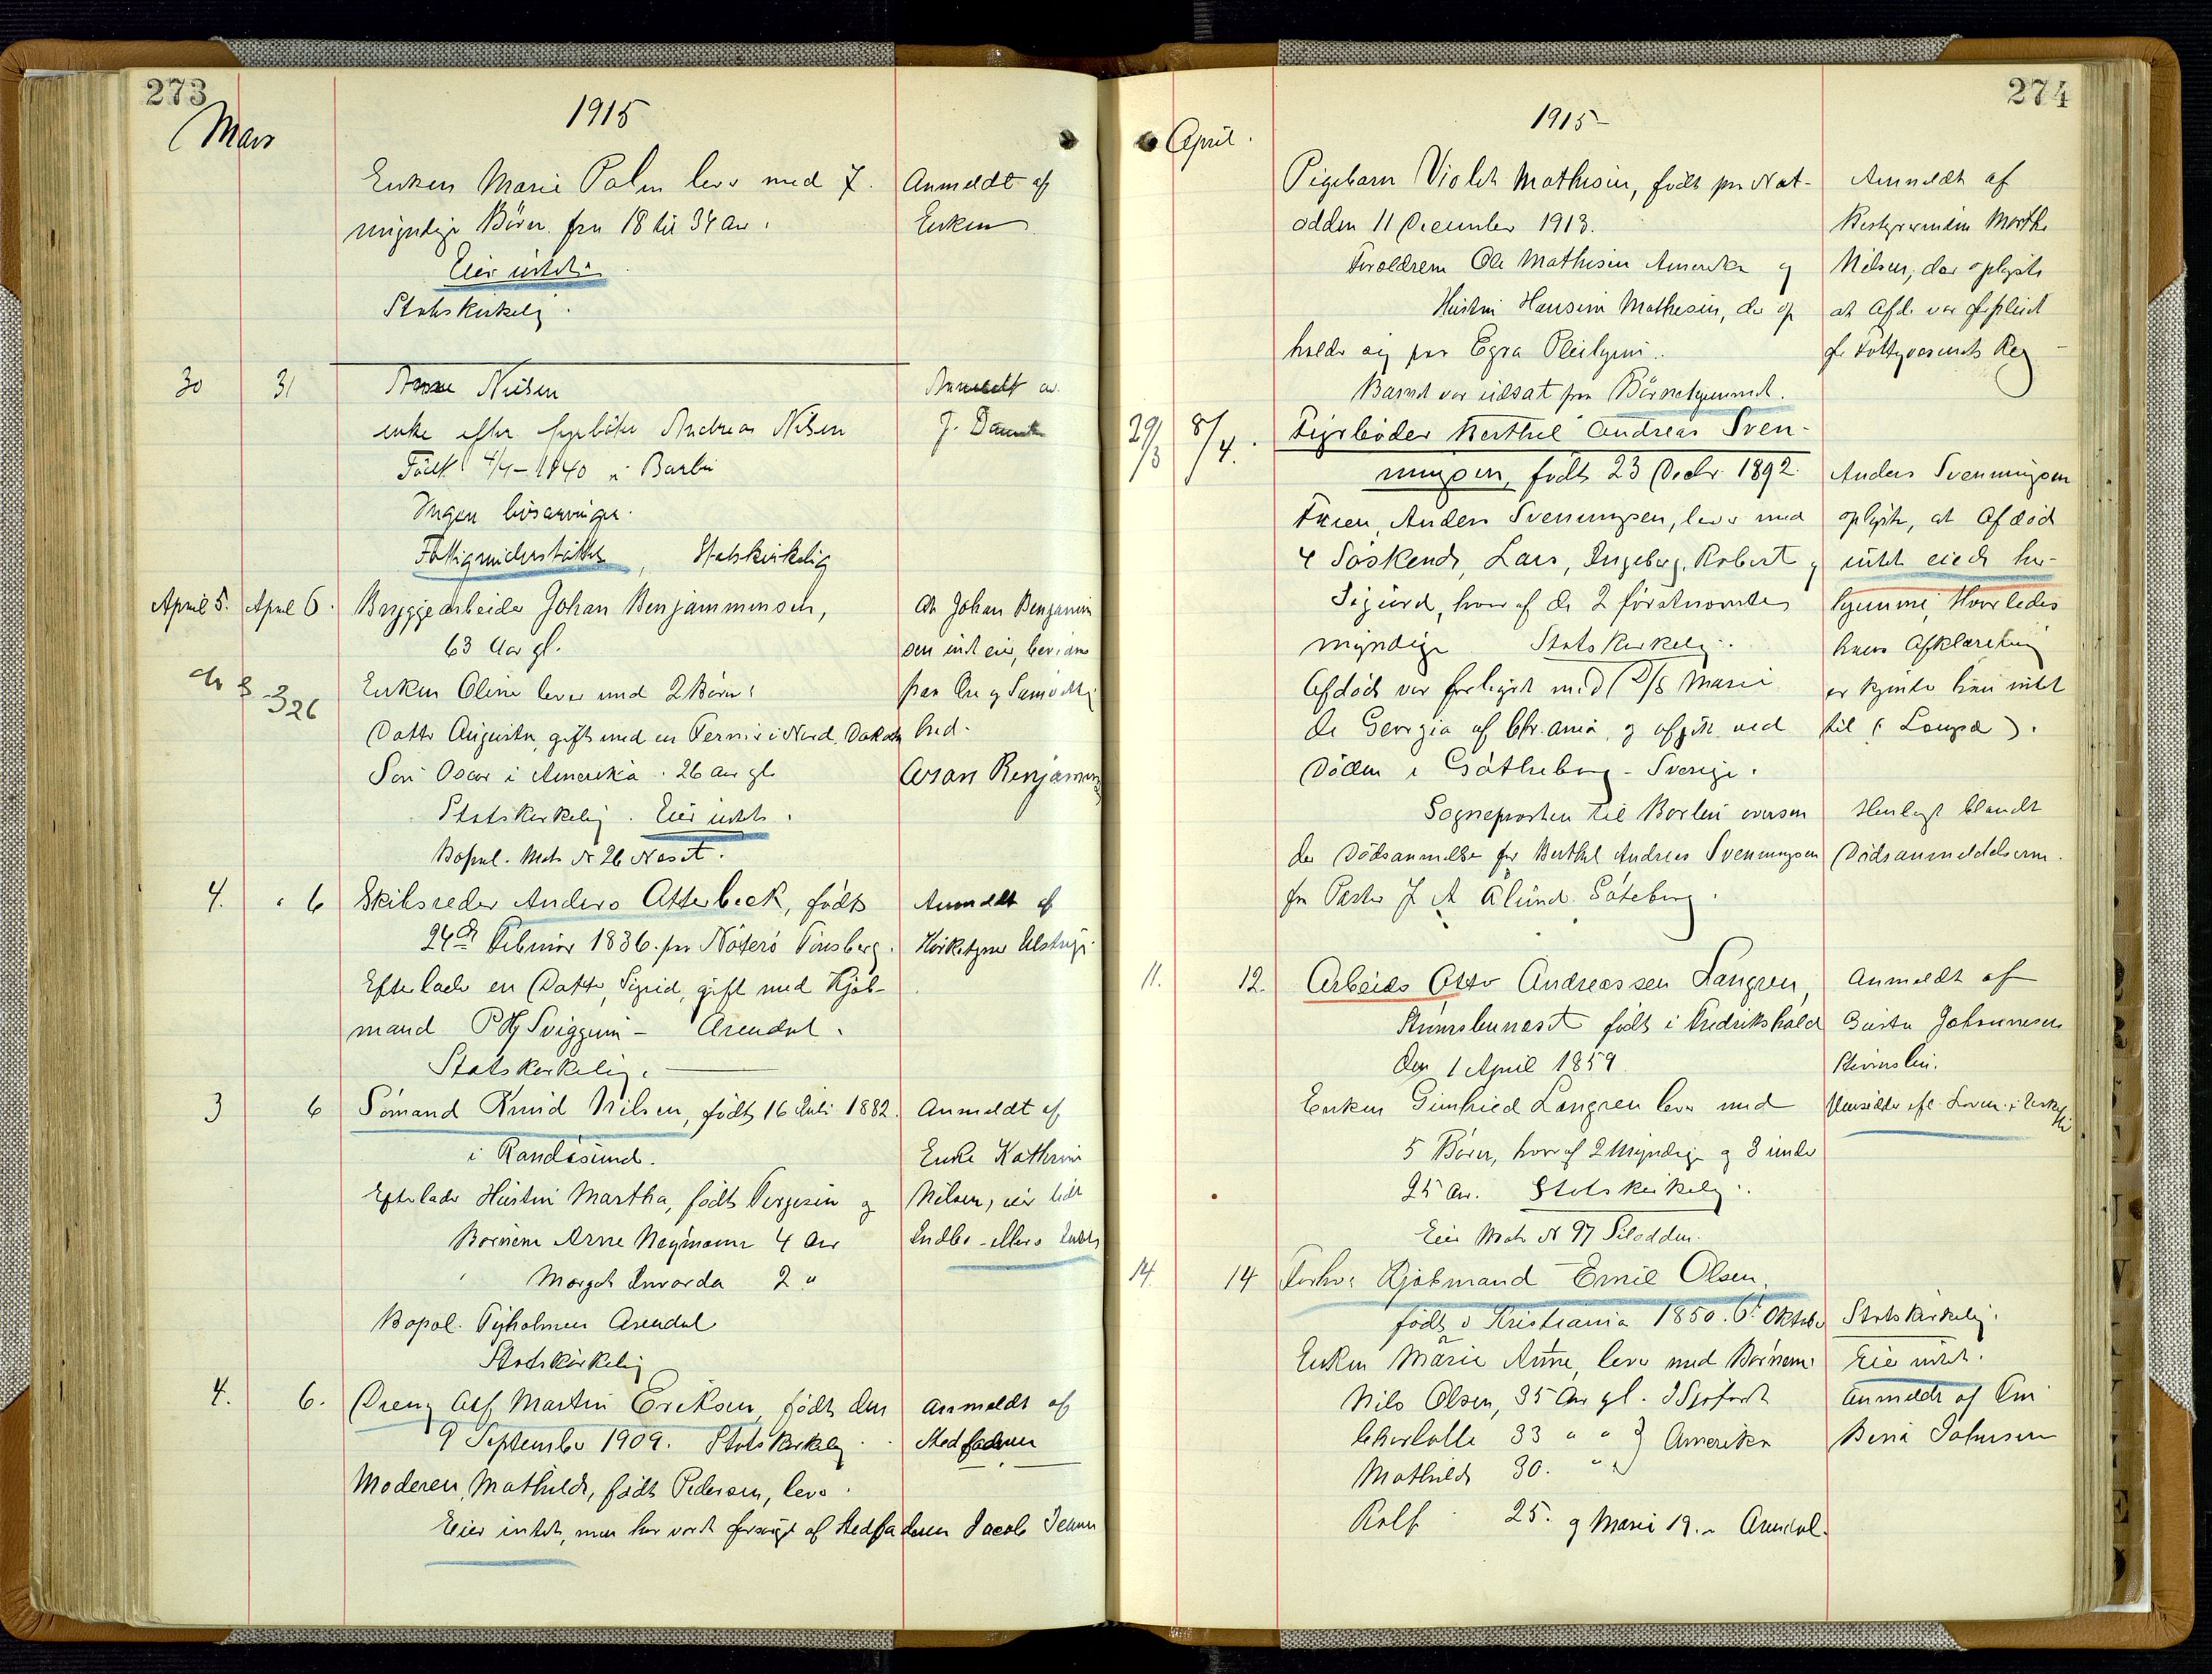 273
1915
Mars
Enken Marie Palm lever med 7.
myndige Börn fra 18 til 34 aar.
Eier intet.
Statskirkelig.
Anmeldt af
Enken
30 31 Anne Nilsen
enke efter fyrböter Andreas Nilsen
Født 4/4-1840 i Barbu
Ingen livsarvinger.
Fattigunderstöttet, Statskirkelig
Anmeldt av
J. Danck
April 5. April 6. Bryggearbeider Johan Benjaminsen,
63 Aar gl.
Enken Oline lever med 2 Börn:
Datter Augusta, gift med en Fermer i Nord. Dakota
Sön Oscar i Amerika. 26 aar gl.
Statskirkelig. Eier intet.
Bopæl. Matr N 26 Neset.
326
At Johan Benjamin
sen intet eier, bevidnes
paa Ære og Samvittig
hed.
Aesan Benjamins
4. " 6 Skibsreder Anders Atterbeck, födt
24de Februar 1836. paa Nöterö Tönsberg.
Efterlader en Datter, Sigrid, gift med Kjöb-
mand P Hj Sviggum - Arendal.
Statskirkelig.
Anmeldt af
3 6 Sömand Knud Nilsen, födt 16 Juli 1882.
i Randösund.
Efterlader Hustru Martha, födt Terjesen og
Börnene Arne Neymann 4 Aar
" Margot Invarda 2 "
Bopæl. Tyholmen Arendal
Statskirkelig
Anmeldt af
Enke Kathrine
Nilsen, eier lidt
Indbo - ellers Intet
4. 6. Dreng Alf Martin Eriksen, födt den
9 September 1909. Statskirkelig.
Moderen, Mathilde, födt Pedersen, lever.
Eier intet, men har vært forsörget af Stedfaderen Jacob Jensen
Anmeldt af
Stedfaderen
274
1915-
April.
Pigebarn Violet Mathisen, födt paa Nat-
odden 11 December 1913.
Foreldrene Ole Mathisen Amerika og
Hustru Hansine Mathesen, der op
holder sig paa Egra Pleiehjem.
Barnet var udsat fra Börnehjemmet.
Anmeldt af
Bestyrerinden Marthe
Nilsen, der oplyste
at Afd. var forpleiet
for Fattigvæsenets Reg
29/3 8/4. Fyrböder Berthel Andreas Sven-
ningsen, födt 23 Decbr. 1892.
Faren, Anders Svenningsen, lever med
4 Söskende, Lars, Ingeborg, Robert og
Sigurd, hvoraf de 2 förstnævnte
myndige Statskirkelig.
Afdöde var forhyret med D/S Marie
de Georgia af Chr.ania, og afgik ved
Döden i Götheborg - Sverige.
Sogneprosten til Barbu oversen
der Dödsanmeldelse for Berthel Andreas Svenningsen
fra Pastor J A Ölund Göteborg.
Anders Svenningsen
oplyste, at Afdöd
intet eiede her-
hjemme, Hvorledes
hans Afklarering
er kjendte han intet
til (Loupa).
Henlagt blandt
Dödsanmeldelserne.
11. 12. Arbeids Otto Andreassen Langren,
Strömsbuneset födt i Fredrikshald
den 1 April 1859.
Enken Gunhild Langren lever med
5 Börn, hvoraf 2 Myndige og 3 under
25 Aar. Statskirkelig.
Eier Matr N 97 Pilodden.
Anmeldt af
Gusta Johannesen
Strömsbu.
14. 14 Forhv. Kjöbmand Emil Olsen,
födt i Kristiania 1850. 6te Oktober
Enken Marie Anne, lever med Börnene
Nils Olsen, 35 Aar gl. I Sjöfart
Charlotte 33 " " } Amerika
Mathilde 30. " "
Rolf 25. og Marie 19. " Arendal.
Statskirkelig.
Eier intet.
Anmeldt af
Johnsen